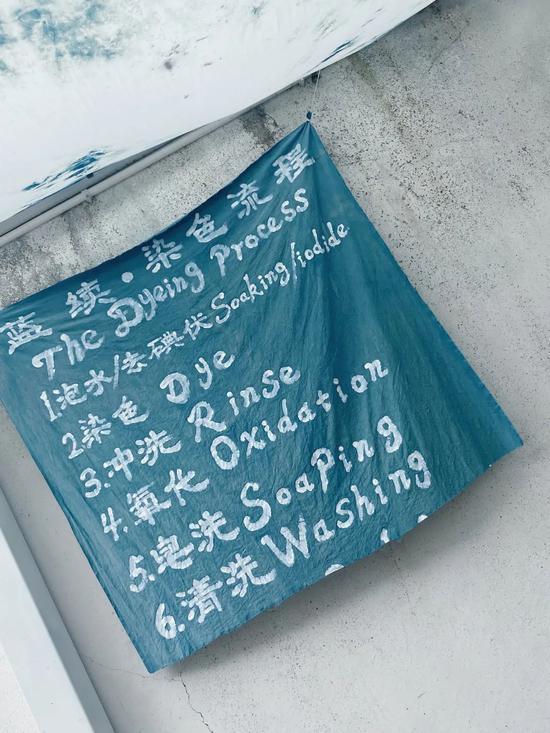 蓝续·染色流程
The Dyeing Process
1.泡水/去碘伏 Soaking/iodide
2.染色 Dye
3.冲洗 Rinse
4.氧化 Oxidation
5.皂洗 Soaping
6.清洗 Washing